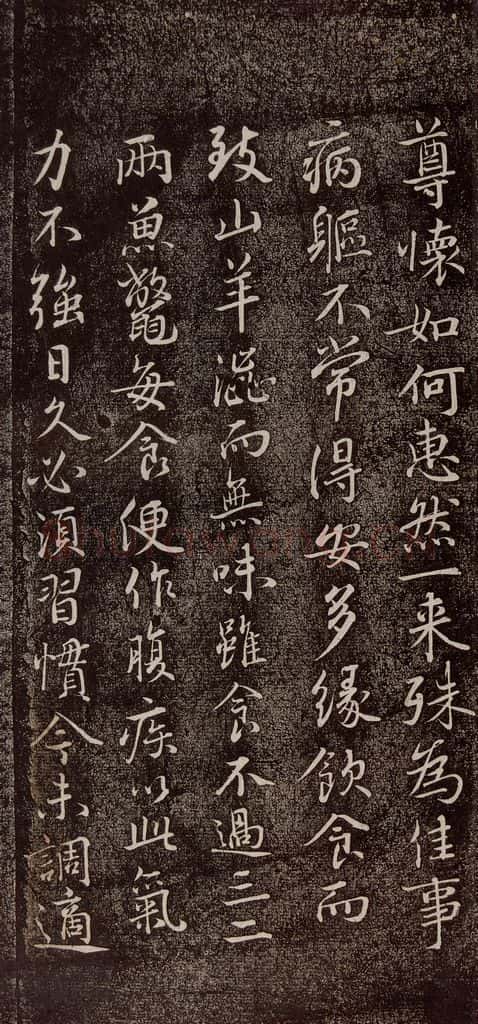 尊懐如何惠然一来殊為佳事
病軀不常得安多緣飲食而
致山羊澁而無味雖食不過三二
兩魚鼈每食便作腹疾以此氣
力不強日久必須習慣今未調適